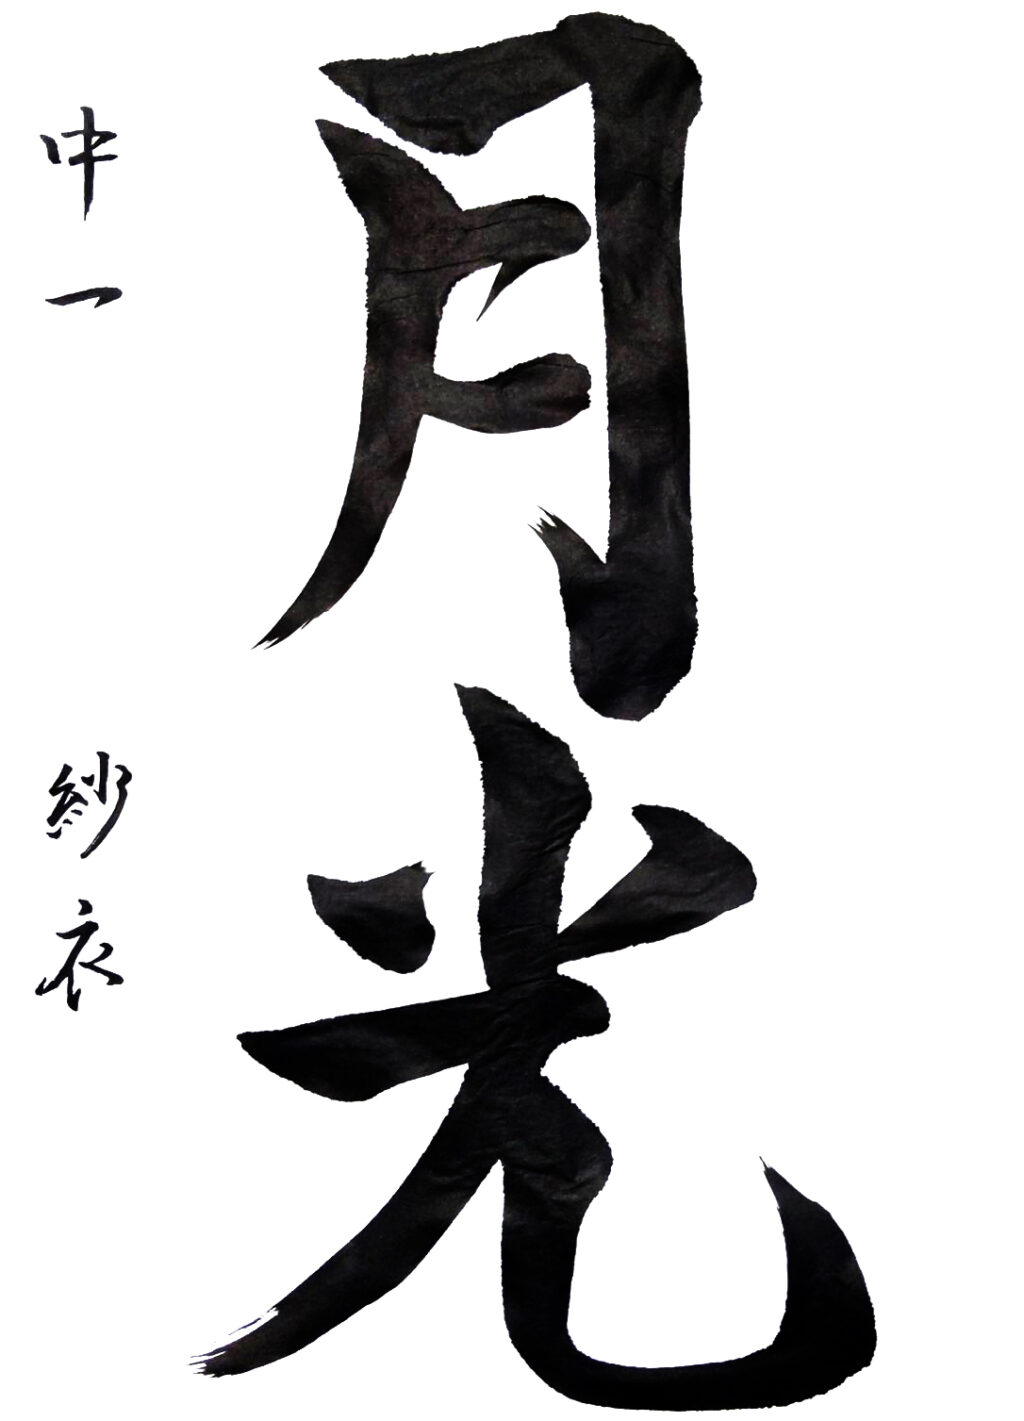 月光
中一 紗衣